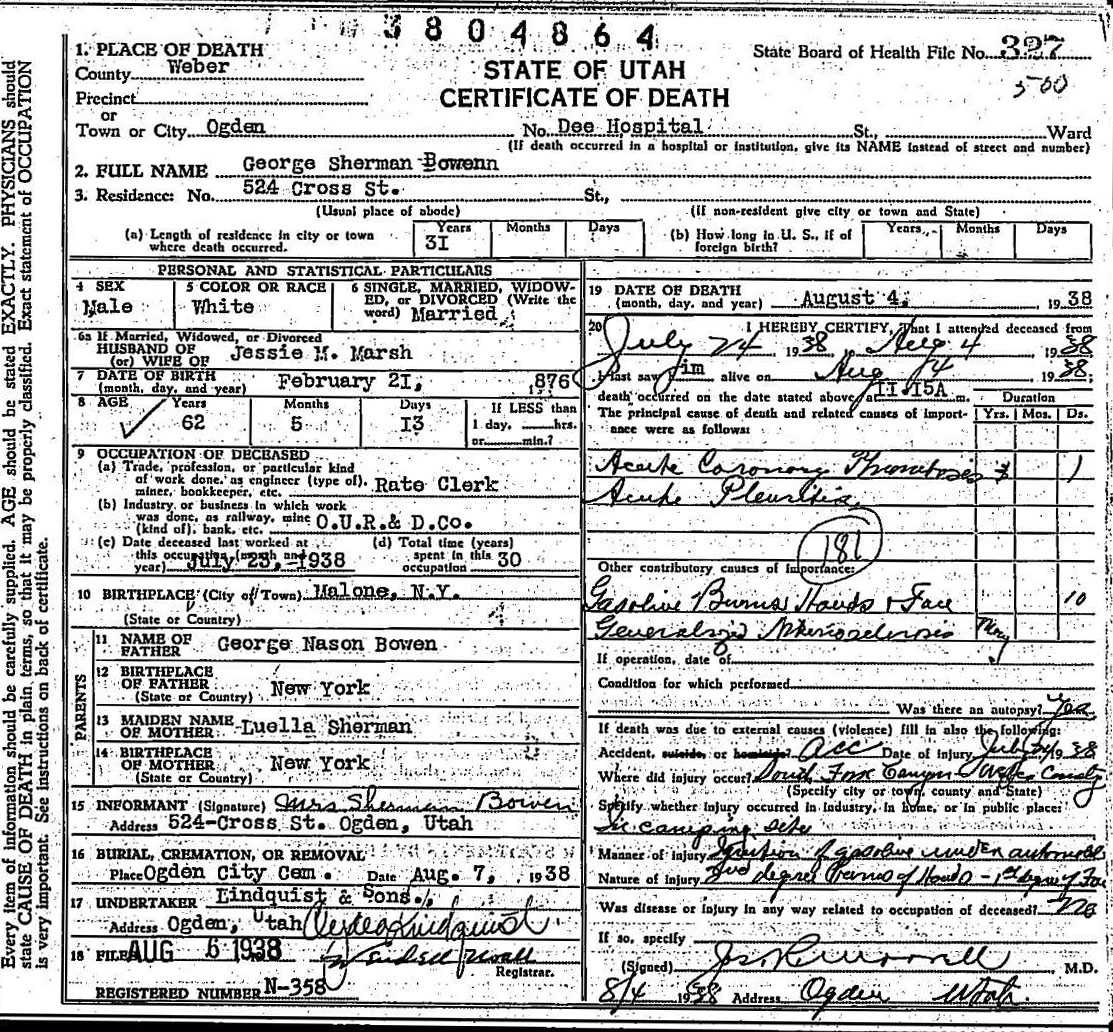 3804864
1. PLACE OF DEATH
State Board of Health File No. 327
County Weber
STATE OF UTAH
500
Precinct
CERTIFICATE OF DEATH
or
Town or City Ogden No. Dee Hospital St., Ward
(If death occurred in a hospital or institution, give its NAME instead of street and number)
2. FULL NAME George Sherman Bowenn
3. Residence: No. 524 Cross St. St.,
(Usual place of abode) (If non-resident give city or town and State)
(a) Length of residence in city or town where death occurred. Years 31 Months Days
(b) How long in U. S., if of foreign birth? Years Months Days
PERSONAL AND STATISTICAL PARTICULARS
4 SEX Male
5 COLOR OR RACE White
6 SINGLE, MARRIED, WIDOWED, or DIVORCED (Write the word) Married
6a If Married, Widowed, or Divorced
HUSBAND OF
(or) WIFE OF Jessie M. Marsh
7 DATE OF BIRTH
(month, day, and year) February 21, 1876
8 AGE Years 62 Months 5 Days 13 If LESS than 1 day, hrs. or min.?
9 OCCUPATION OF DECEASED
(a) Trade, profession, or particular kind
of work done, as engineer (type of),
miner, bookkeeper, etc. Rate Clerk
(b) Industry or business in which work
was done, as railway, mine
(kind of), bank, etc. O.U.R.& D.Co.
(c) Date deceased last worked at
this occupation (month and
year) July 23, 1938
(d) Total time (years)
spent in this
occupation 30
10 BIRTHPLACE (City or Town) Malone, N.Y.
(State or Country)
PARENTS
11 NAME OF
FATHER George Nason Bowen
12 BIRTHPLACE
OF FATHER New York
(State or Country)
13 MAIDEN NAME
OF MOTHER Luella Sherman
14 BIRTHPLACE
OF MOTHER New York
(State or Country)
15 INFORMANT (Signature) Mrs Sherman Bowen
Address 524-Cross St. Ogden, Utah
16 BURIAL, CREMATION, OR REMOVAL
Place Ogden City Cem. Date Aug. 7, 1938
17 UNDERTAKER Lindquist & Sons.
Address Ogden, Utah
18 FILED AUG 6 1938
Registrar.
REGISTERED NUMBER N-358
19 DATE OF DEATH
(month, day, and year) August 4, 1938
20 I HEREBY CERTIFY, That I attended deceased from
July 24 1938 Aug 4 1938
I last saw him alive on Aug 4 1938;
death occurred on the date stated above, at 11.15A m.
The principal cause of death and related causes of importance were as follows:
Duration
Yrs. Mos. Ds.
Acute Coronary Thrombosis 1
Acute Pleuritis
181
Other contributory causes of importance:
Gasoline Burns Hands & Face 10
Generalized Arteriosclerosis Many
If operation, date of
Condition for which performed
Was there an autopsy? Yes
If death was due to external causes (violence) fill in also the following:
Accident, suicide, or homicide? Acc Date of injury July 24 1938
Where did injury occur? South Fork Canyon Weber County
(Specify city or town, county and State)
Specify whether injury occurred in Industry, in home, or in public place:
In camping site
Manner of injury Ignition of gasoline under automobile
Nature of injury 2nd degree burns of Hands - 1st degree of Face
Was disease or injury in any way related to occupation of deceased? No
If so, specify
(Signed) M.D.
8/4 1938 Address Ogden Utah.
Every item of information should be carefully supplied. AGE should be stated EXACTLY. PHYSICIANS should
state CAUSE OF DEATH in plain terms, so that it may be properly classified. Exact statement of OCCUPATION
is very important. See instructions on back of certificate.